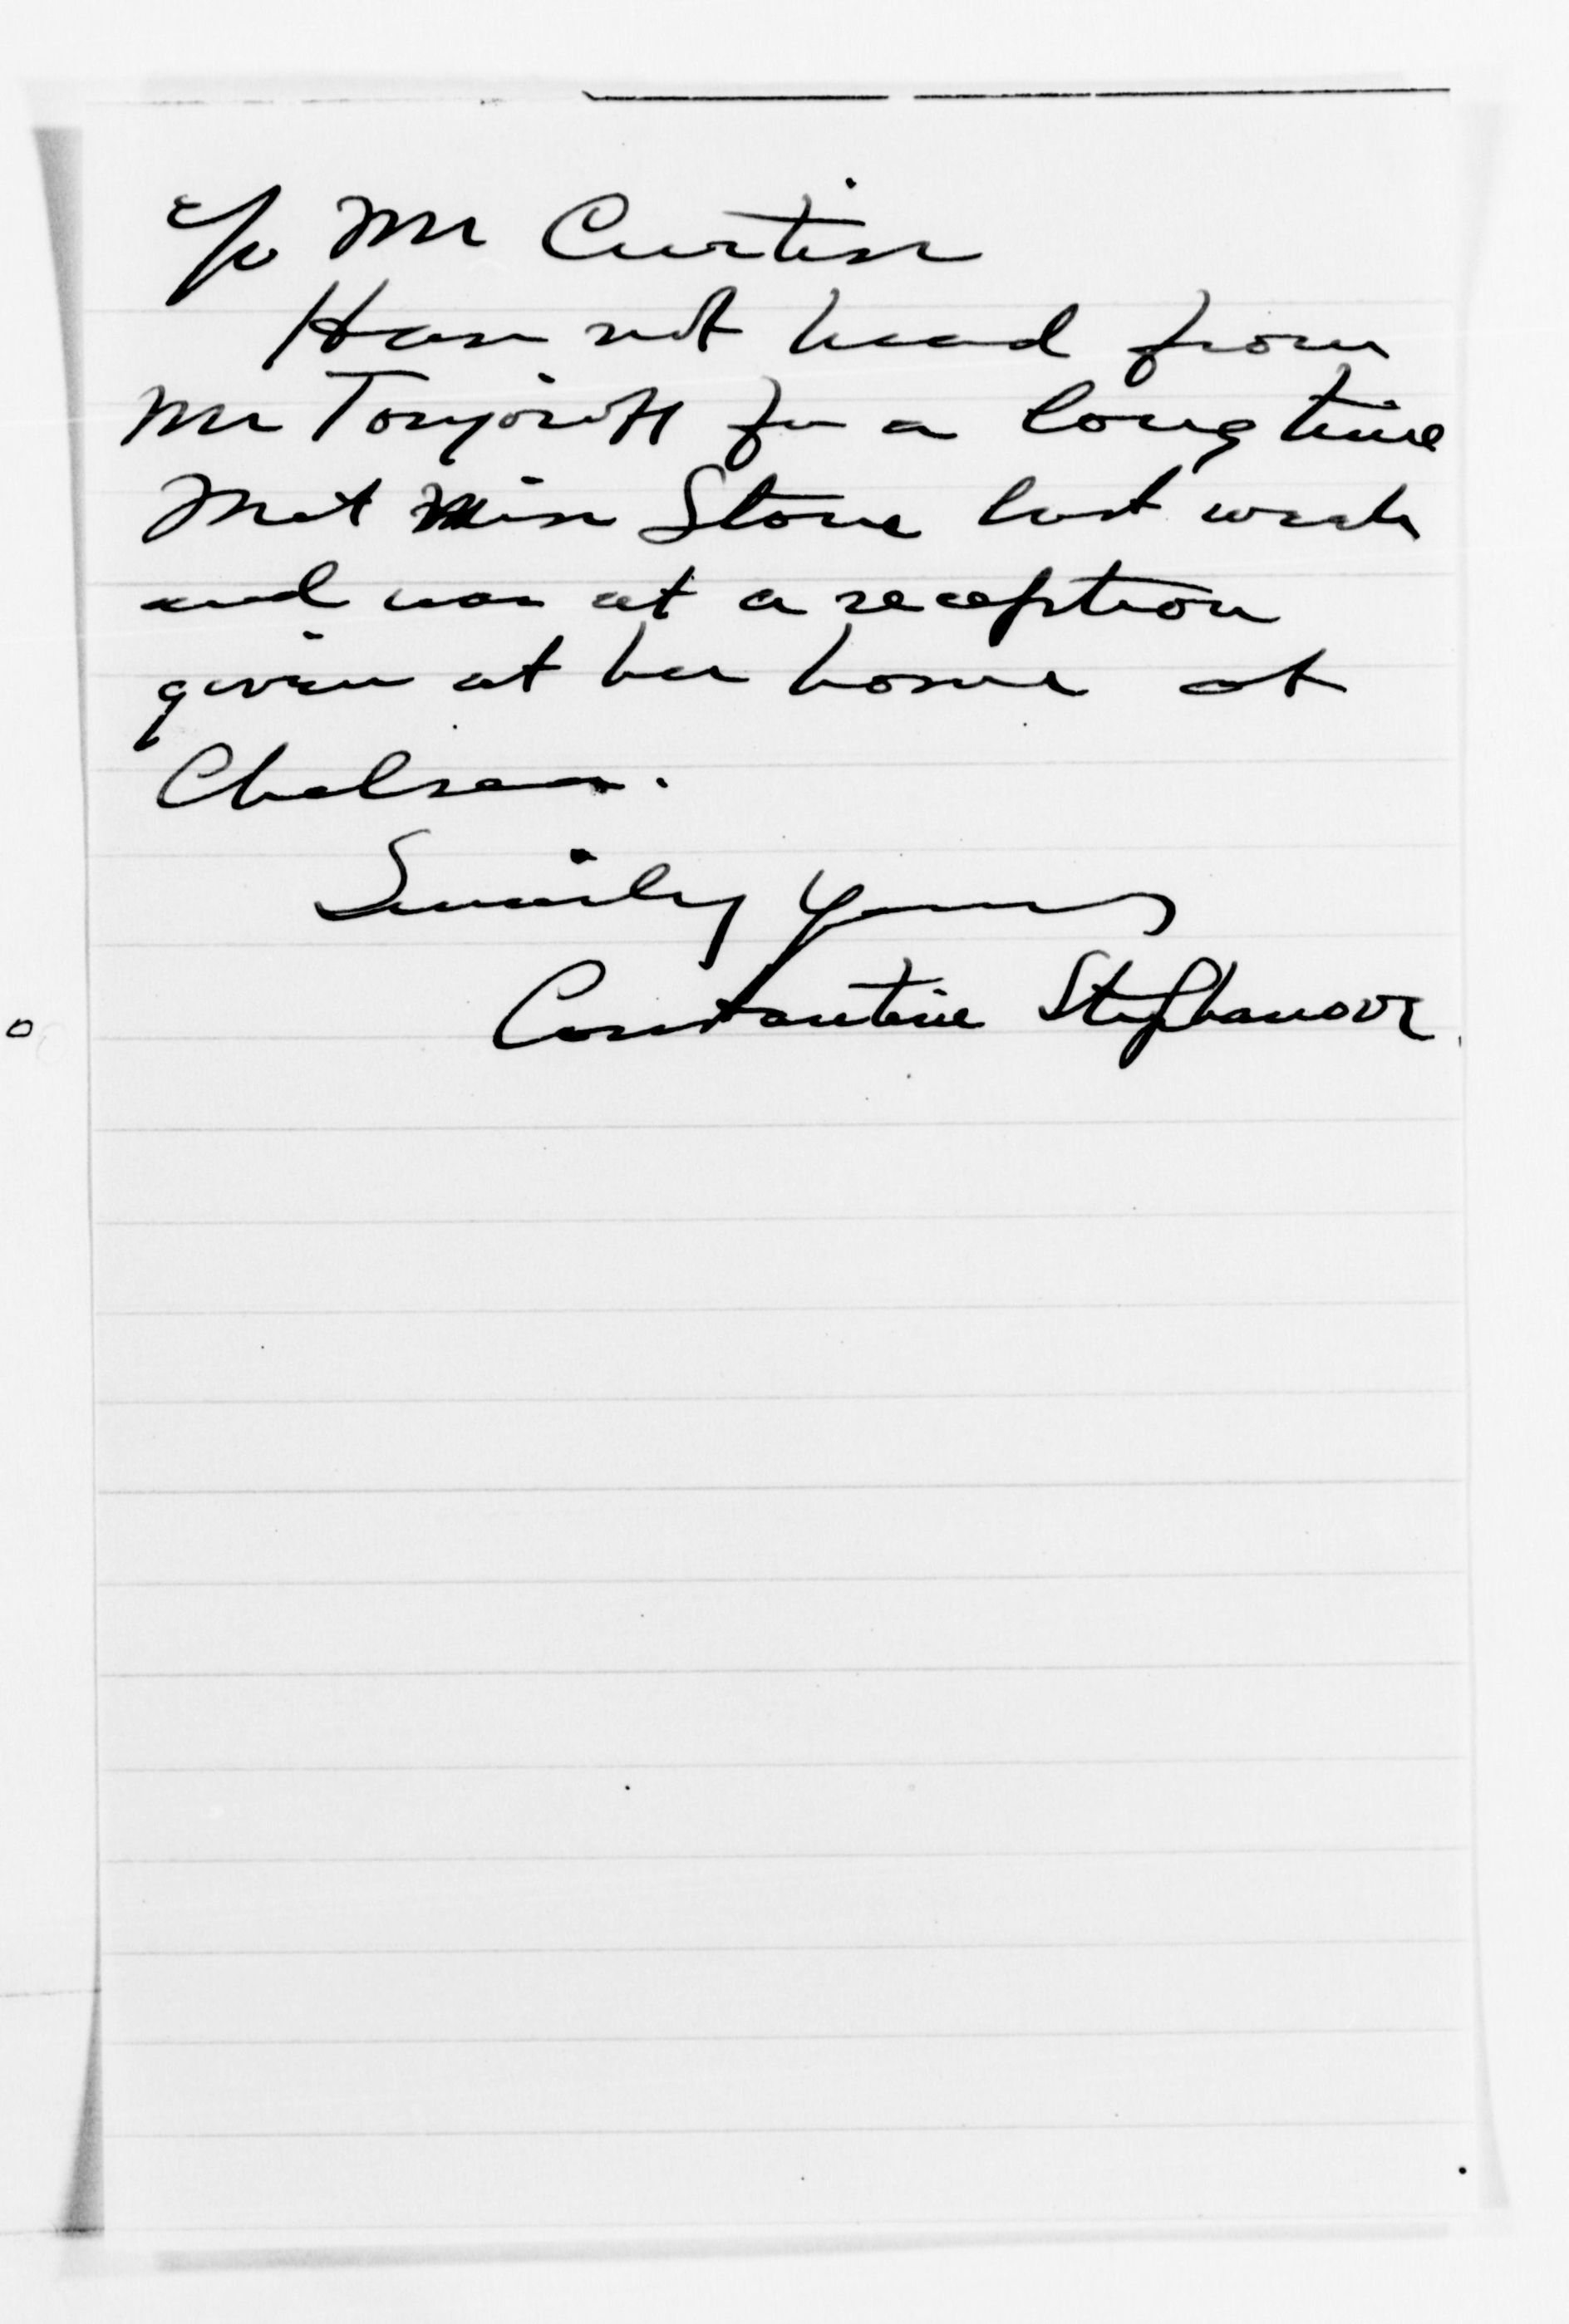 c/o Mr Curtiss
Have not heard from
Mr for a long time
Met Miss Stone last week
and was at a reception
given at her home at
Chelsea.
Sincerely Yours
Constantine Stephanove